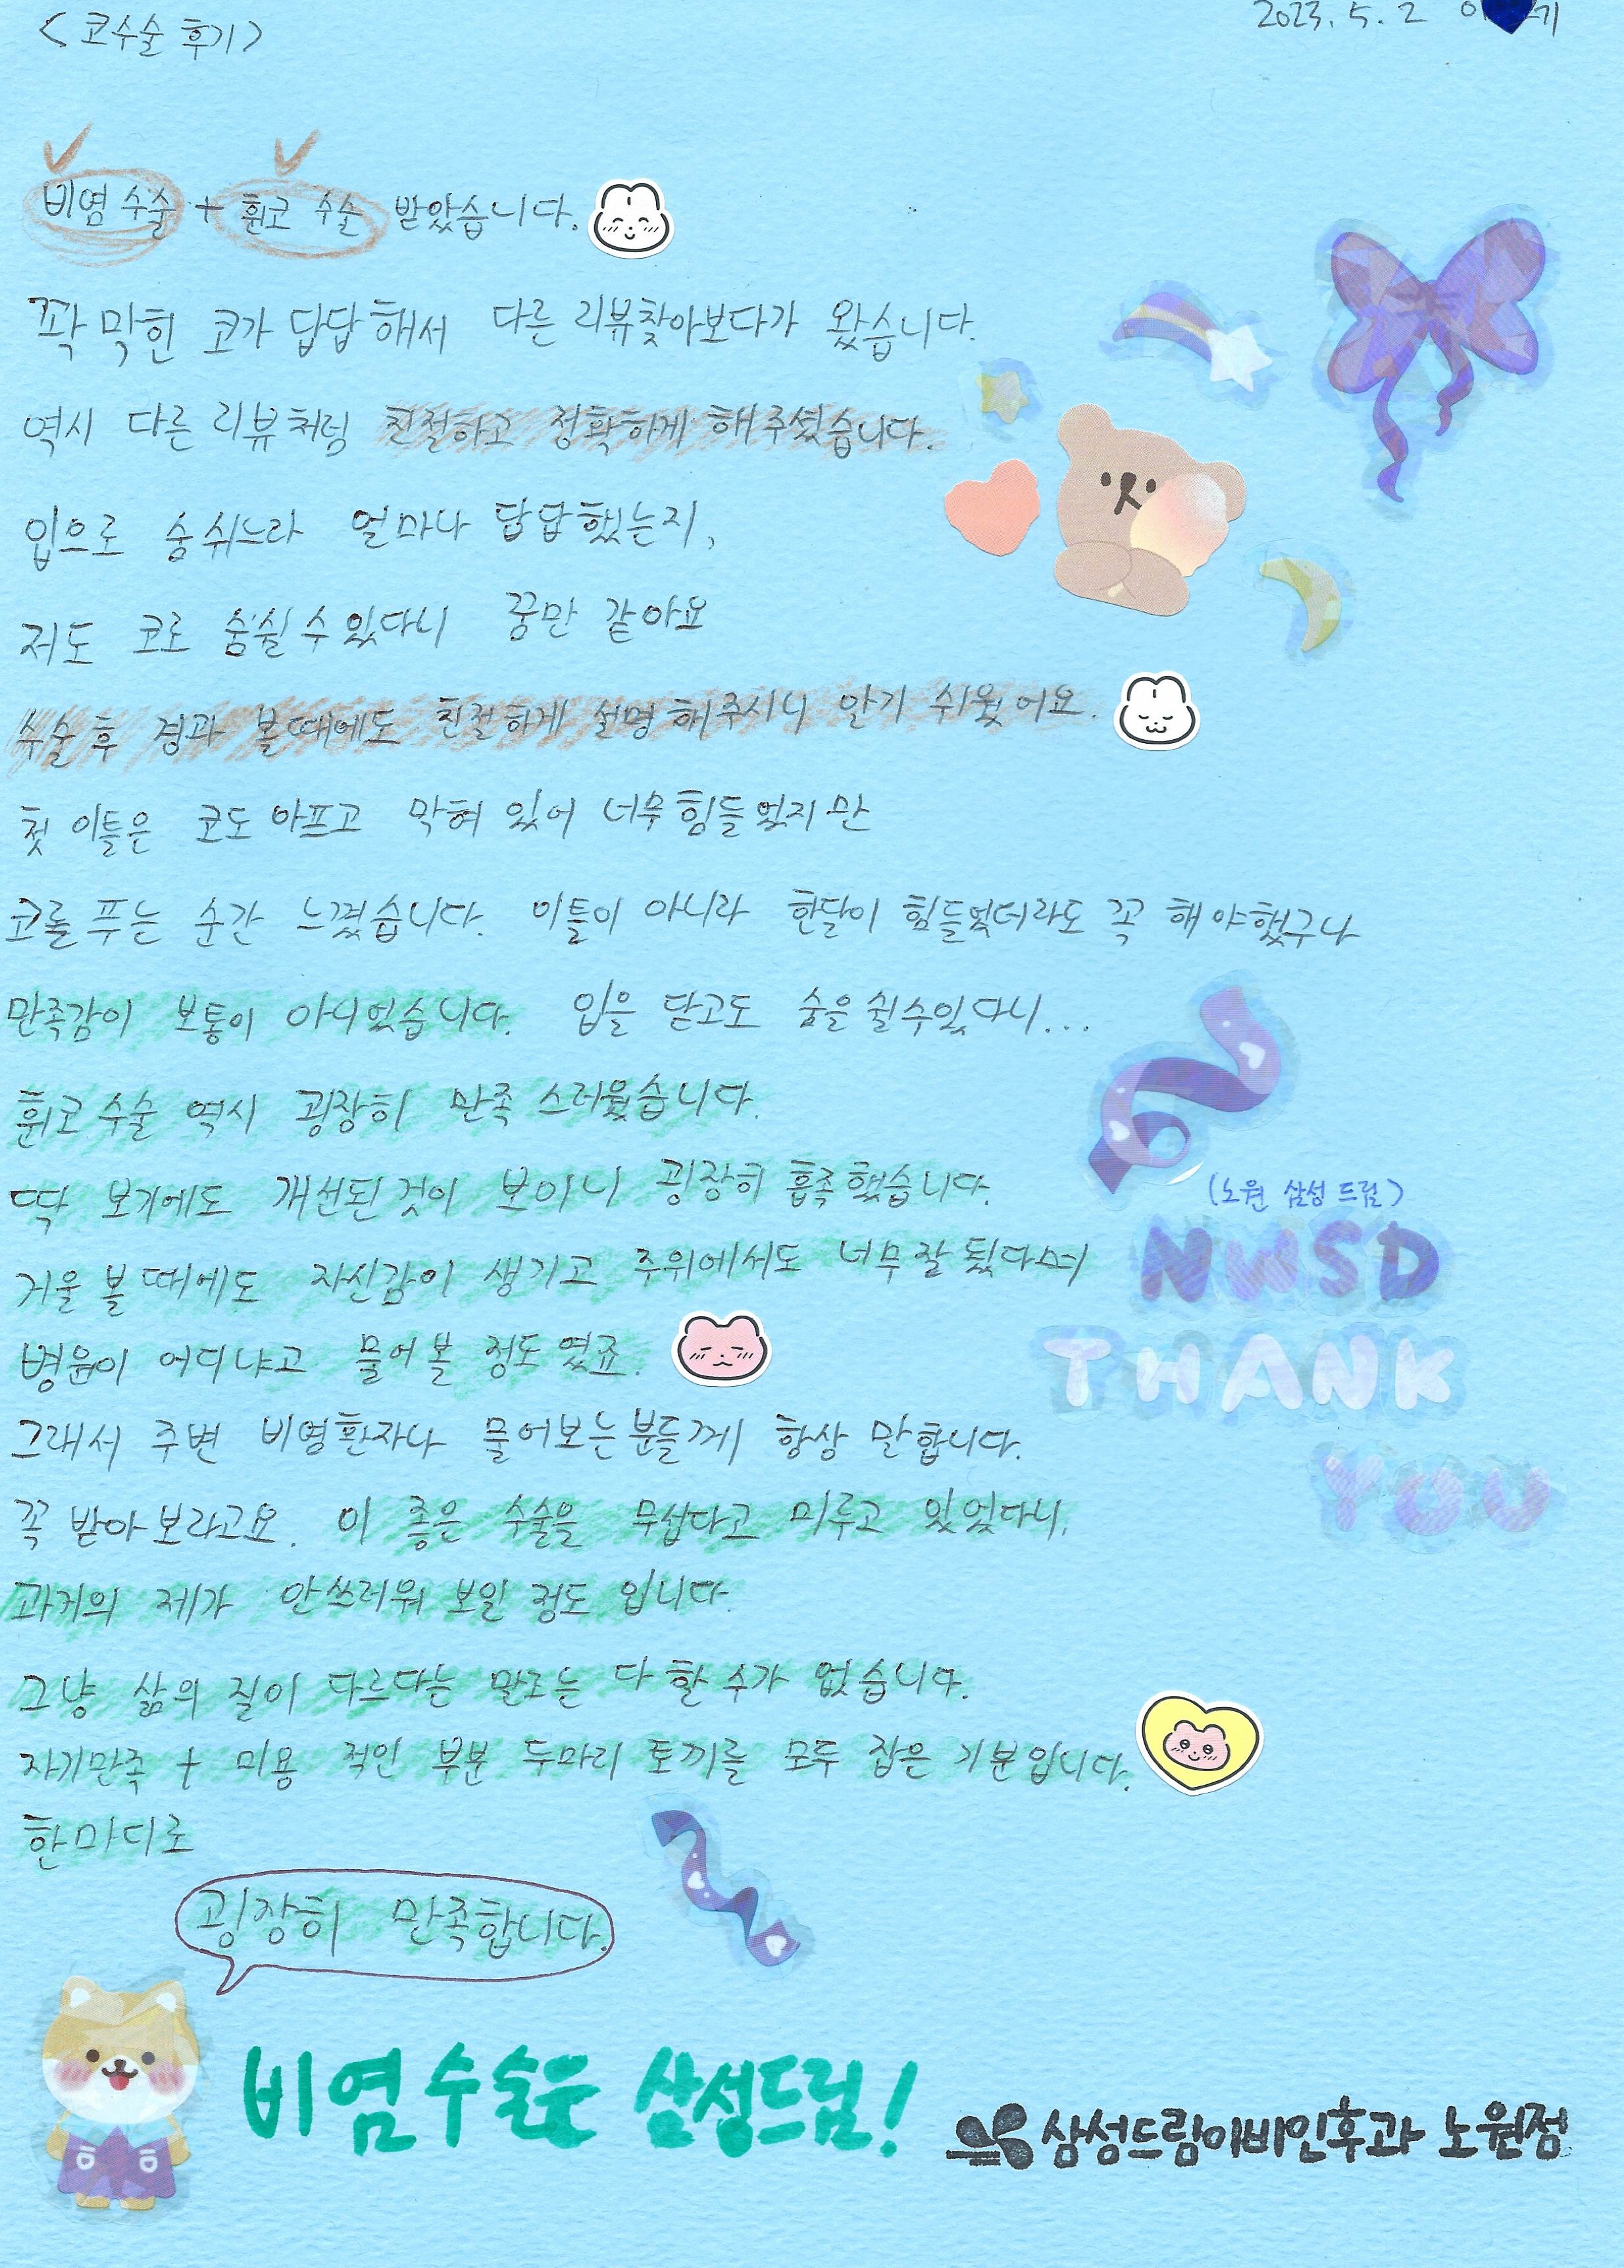 <코수술 후기>
2023. 5. 2
비염 수술 + 휜코 수술 받았습니다.
꽉 막힌 코가 답답해서 다른 리뷰찾아보다가 왔습니다.
역시 다른 리뷰처럼 친절하고 정확하게 해주셨습니다.
입으로 숨쉬느라 얼마나 답답했는지,
저도 코로 숨쉴수있다니 꿈만 같아요
수술후 경과 볼때에도 친절하게 설명해주시니 알기 쉬웠어요.
첫 이틀은 코도 아프고 막혀 있어 너무힘들었지만
코를 푸는 순간 느꼈습니다. 이틀이 아니라 한달이 힘들었더라도 꼭 해야했구나
만족감이 보통이 아니었습니다. 입을 닫고도 숨을 쉴수있다니...
휜코수술 역시 굉장히 만족스러웠습니다.
딱 보기에도 개선된것이 보이니 굉장히 흡족했습니다.
거울 볼때에도 자신감이 생기고 주위에서도 너무잘됐다며
병원이 어디냐고 물어볼 정도였죠.
그래서 주변 비염환자나 물어보는분들께 항상 말합니다.
꼭 받아보라고요. 이 좋은 수술을 무섭다고 미루고 있었다니,
과거의 제가 안쓰러워 보일 정도 입니다.
그냥 삶의 질이 다르다는 말로는 다 할수가 없습니다.
자기만족 + 미용 적인 부분 두마리 토끼를 모두 잡은 기분입니다.
한마디로
굉장히 만족합니다.
(노원 삼성 드림)
NWSD
THANK
YOU
비염수술은 삼성드림!
삼성드림이비인후과 노원점